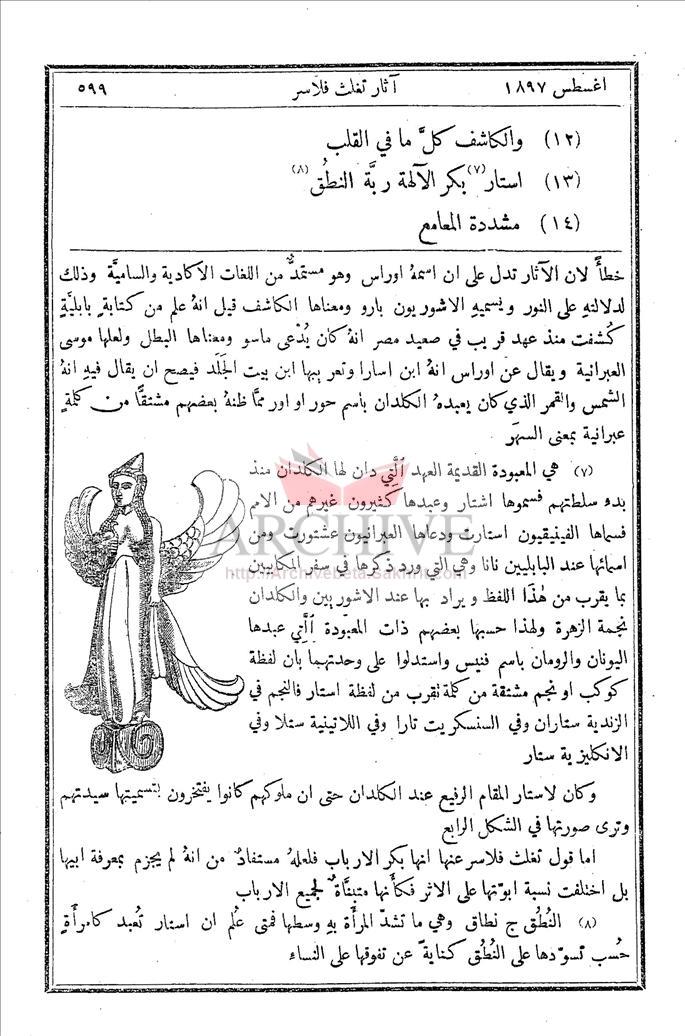 اغسطس ١٨٩٧ آثار تغلث فلاسر ٥٩٩
(١٢) والكاشف كلَّ ما في القلب
(١٣) استار(٧) بكر الآلهة ربَّة النطُق(٨)
(١٤) مشددة المعامع
خطأً لان الآثار تدل على ان اسمهُ اوراس وهو مستمدٌّ من اللغات الاكادية والساميَّة وذلك
لدلالتهِ على النور ويسميهِ الاشوريون بارو ومعناها الكاشف قيل انهُ علم من كتابةٍ بابليَّةٍ
كُشفت منذ عهد قريب في صعيد مصر انهُ كان يُدعى ماسو ومعناها البطل ولعلها موسى
العبرانية ويقال عن اوراس انهُ ابن اسارا وتعريبها ابن بيت الجَلَد فيصح ان يقال فيهِ انهُ
الشمس والقمر الذي كان يعبدهُ الكلدان باسم حور او اور ممَّا ظنهُ بعضهم مشتقًّا من كلمةٍ
عبرانية بمعنى السهَر
(٧) هي المعبودة القديمة العهد ٱلَّتِي دان لها الكلدان منذ
بدء سلطتهم فسموها اشتار وعبدها كثيرون غيرهم من الامم
فسماها الفينيقيون استارت ودعاها العبرانيون عشتورت ومن
ARCHIVE
اسمائها عند البابليين نانا وهي التي ورد ذكرها في سفر المكابيين
http://Archivebeta.Sakhrit.com
بما يقرب من هٰذا اللفظ ويراد بها عند الاشوريين والكلدان
نجمة الزهرة ولهذا حسبها بعضهم ذات المعبودة ٱلَّتِي عبدها
اليونان والرومان باسم فنيس واستدلوا على وحدتهما بان لفظة
كوكب او نجم مشتقة من كلمة تقرب من لفظة استار فالنجم في
الزندية ستاران وفي السنسكريت تارا وفي اللاتينية ستلا وفي
الانكليزية ستار
وكان لاستار المقام الرفيع عند الكلدان حتى ان ملوكهم كانوا يفتخرون بتسميتها سيدتهم
وترى صورتها في الشكل الرابع
اما قول تغلث فلاسر عنها انها بكر الارباب فلعلهُ مستفادٌ من انهُ لم يجزم بمعرفة ابيها
بل اختلفت نسبة ابوّتها على الاثر فكأنها متبنَّاةٌ لجميع الارباب
(٨) النُطُق ج نطاق وهي ما تشدّ المرأة بهِ وسطها فمتى عُلم ان استار تُعبد كامرأةٍ
حُسب تسوّدها على النُطُق كنايةً عن تفوقها على النساء